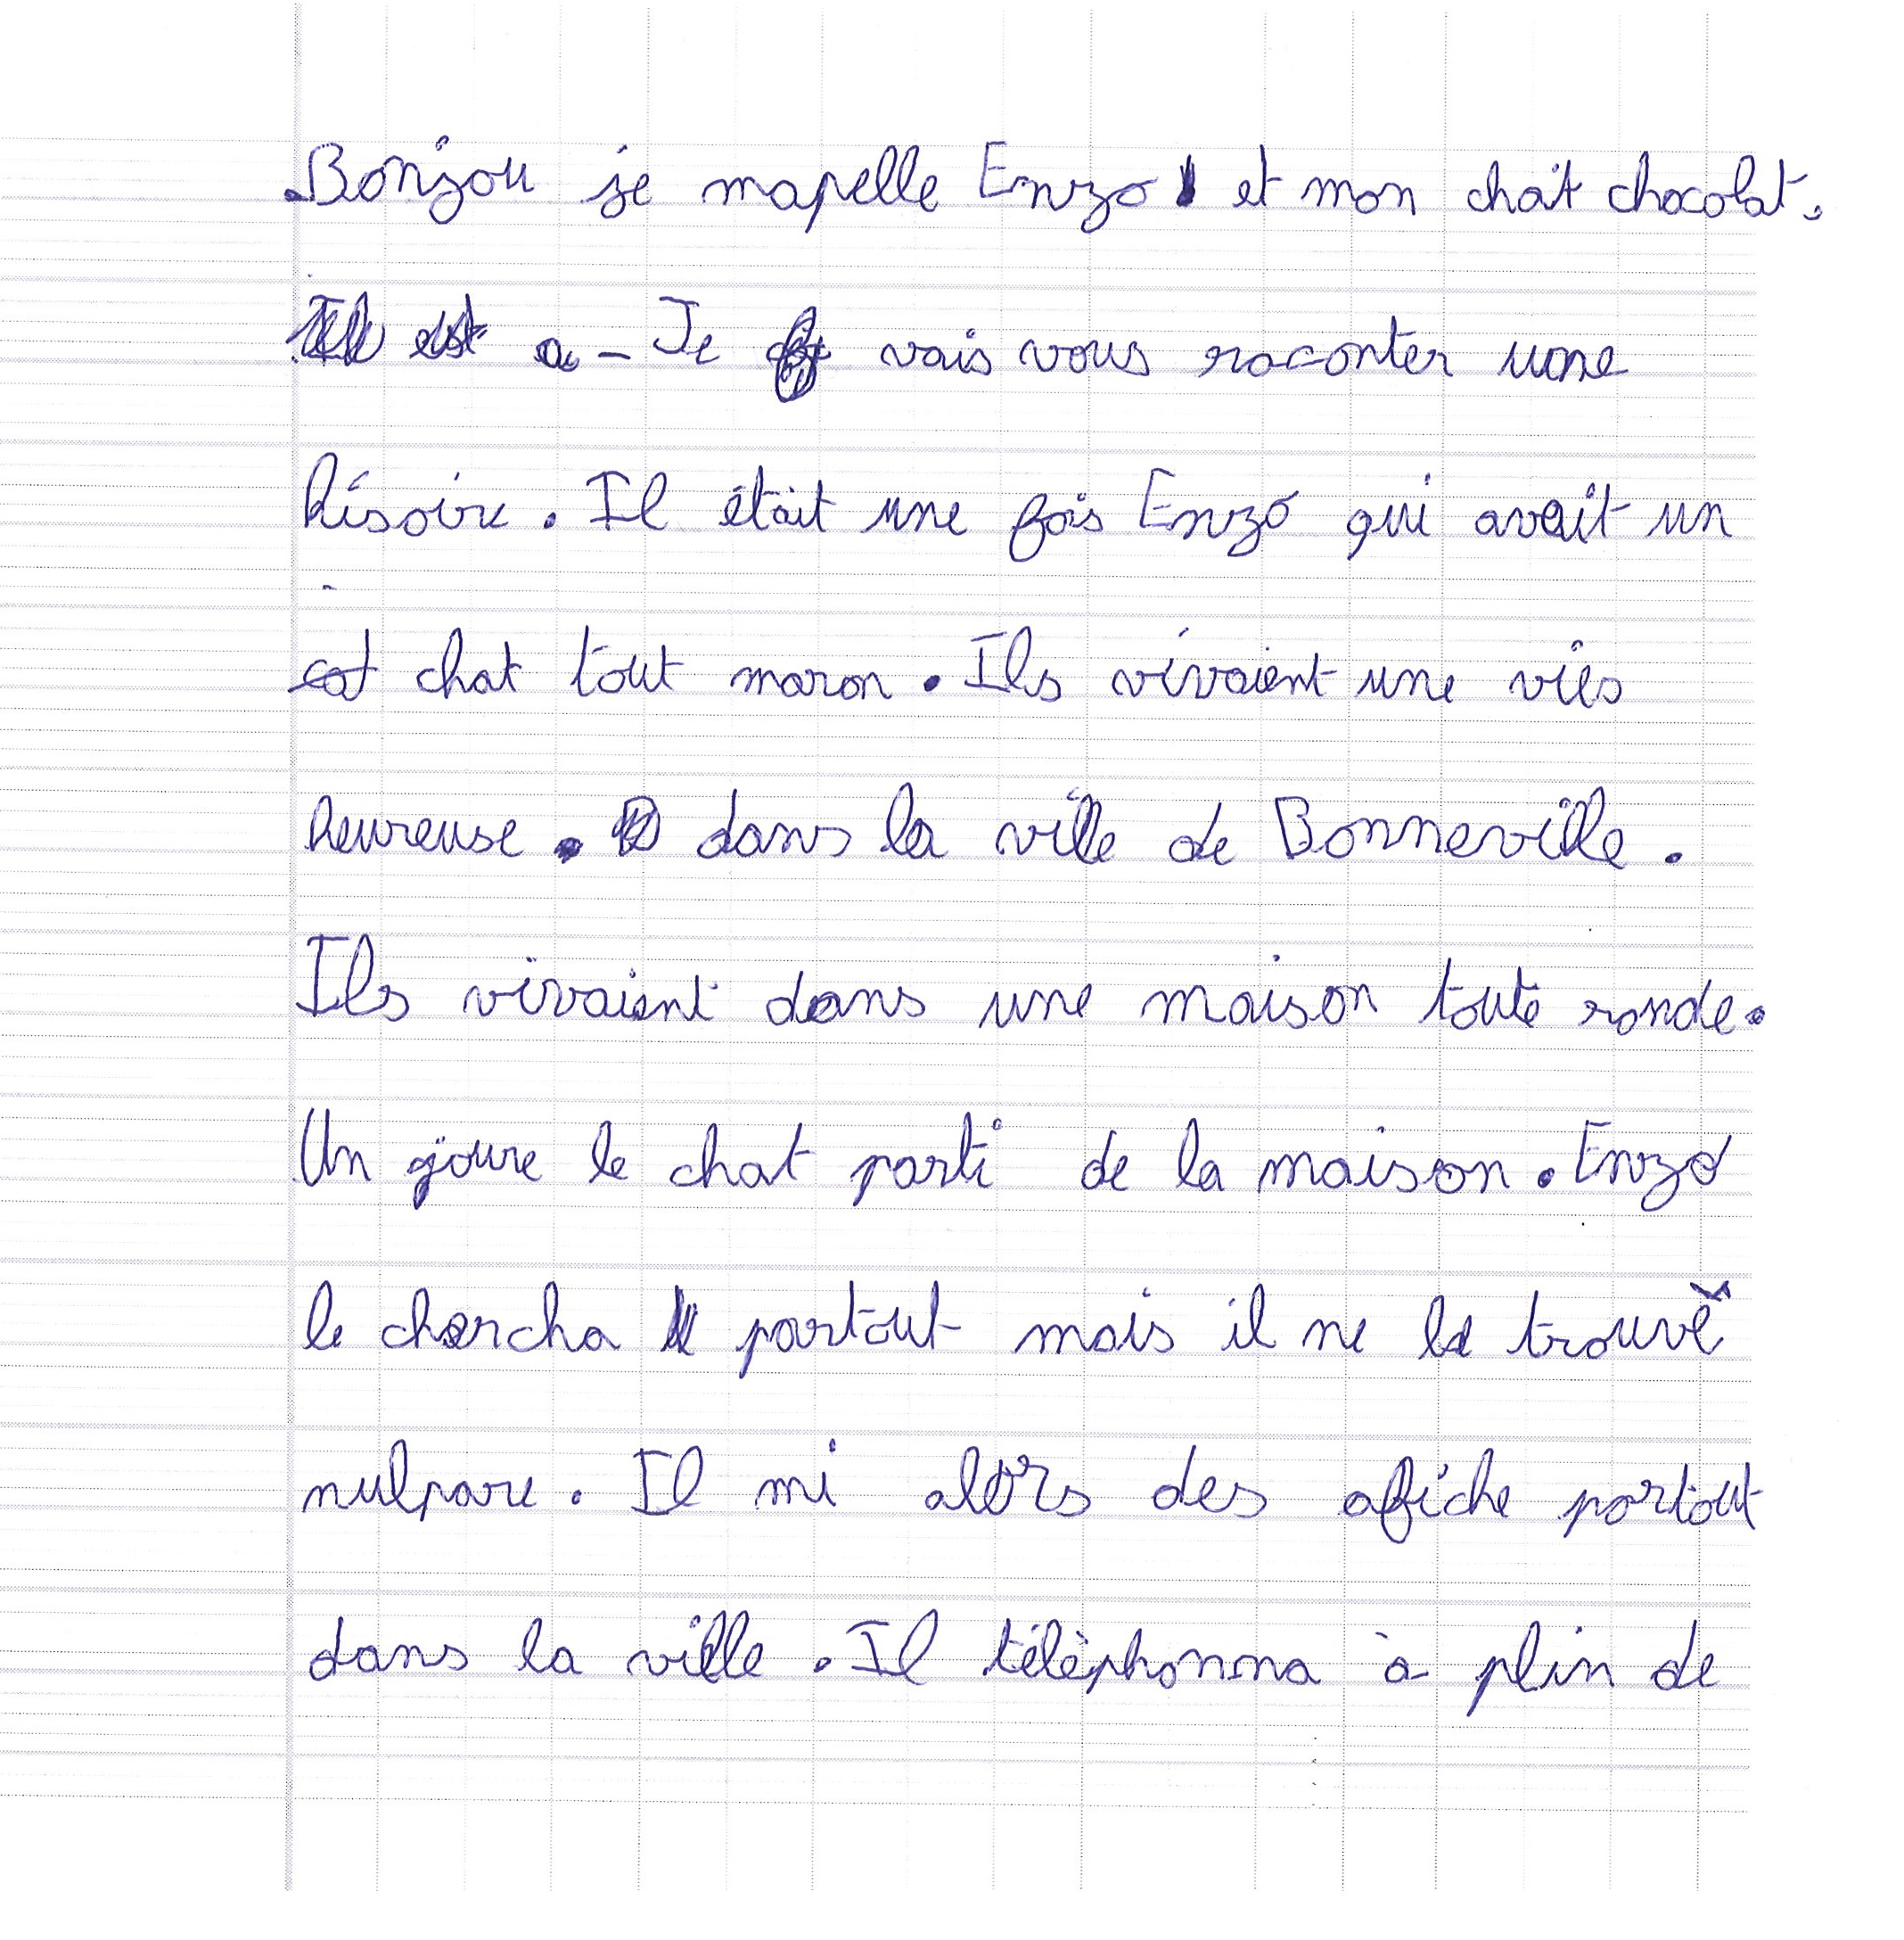 Bonjou je mapelle Enzo et mon chat chocolat.
Il est a - Je vais vous raconter une
hisoire. Il était une fois Enzo qui avait un
cat chat tout maron. Ils vivaient une vies
heureuse. dans la ville de Bonneville.
Ils vivaient dans une maison toute ronde.
Un joure le chat parti de la maison. Enzo
le chercha partout mais il ne le trouvé
nulpare. Il mi alors des afiche partout
dans la ville. Il téléphonna à plin de